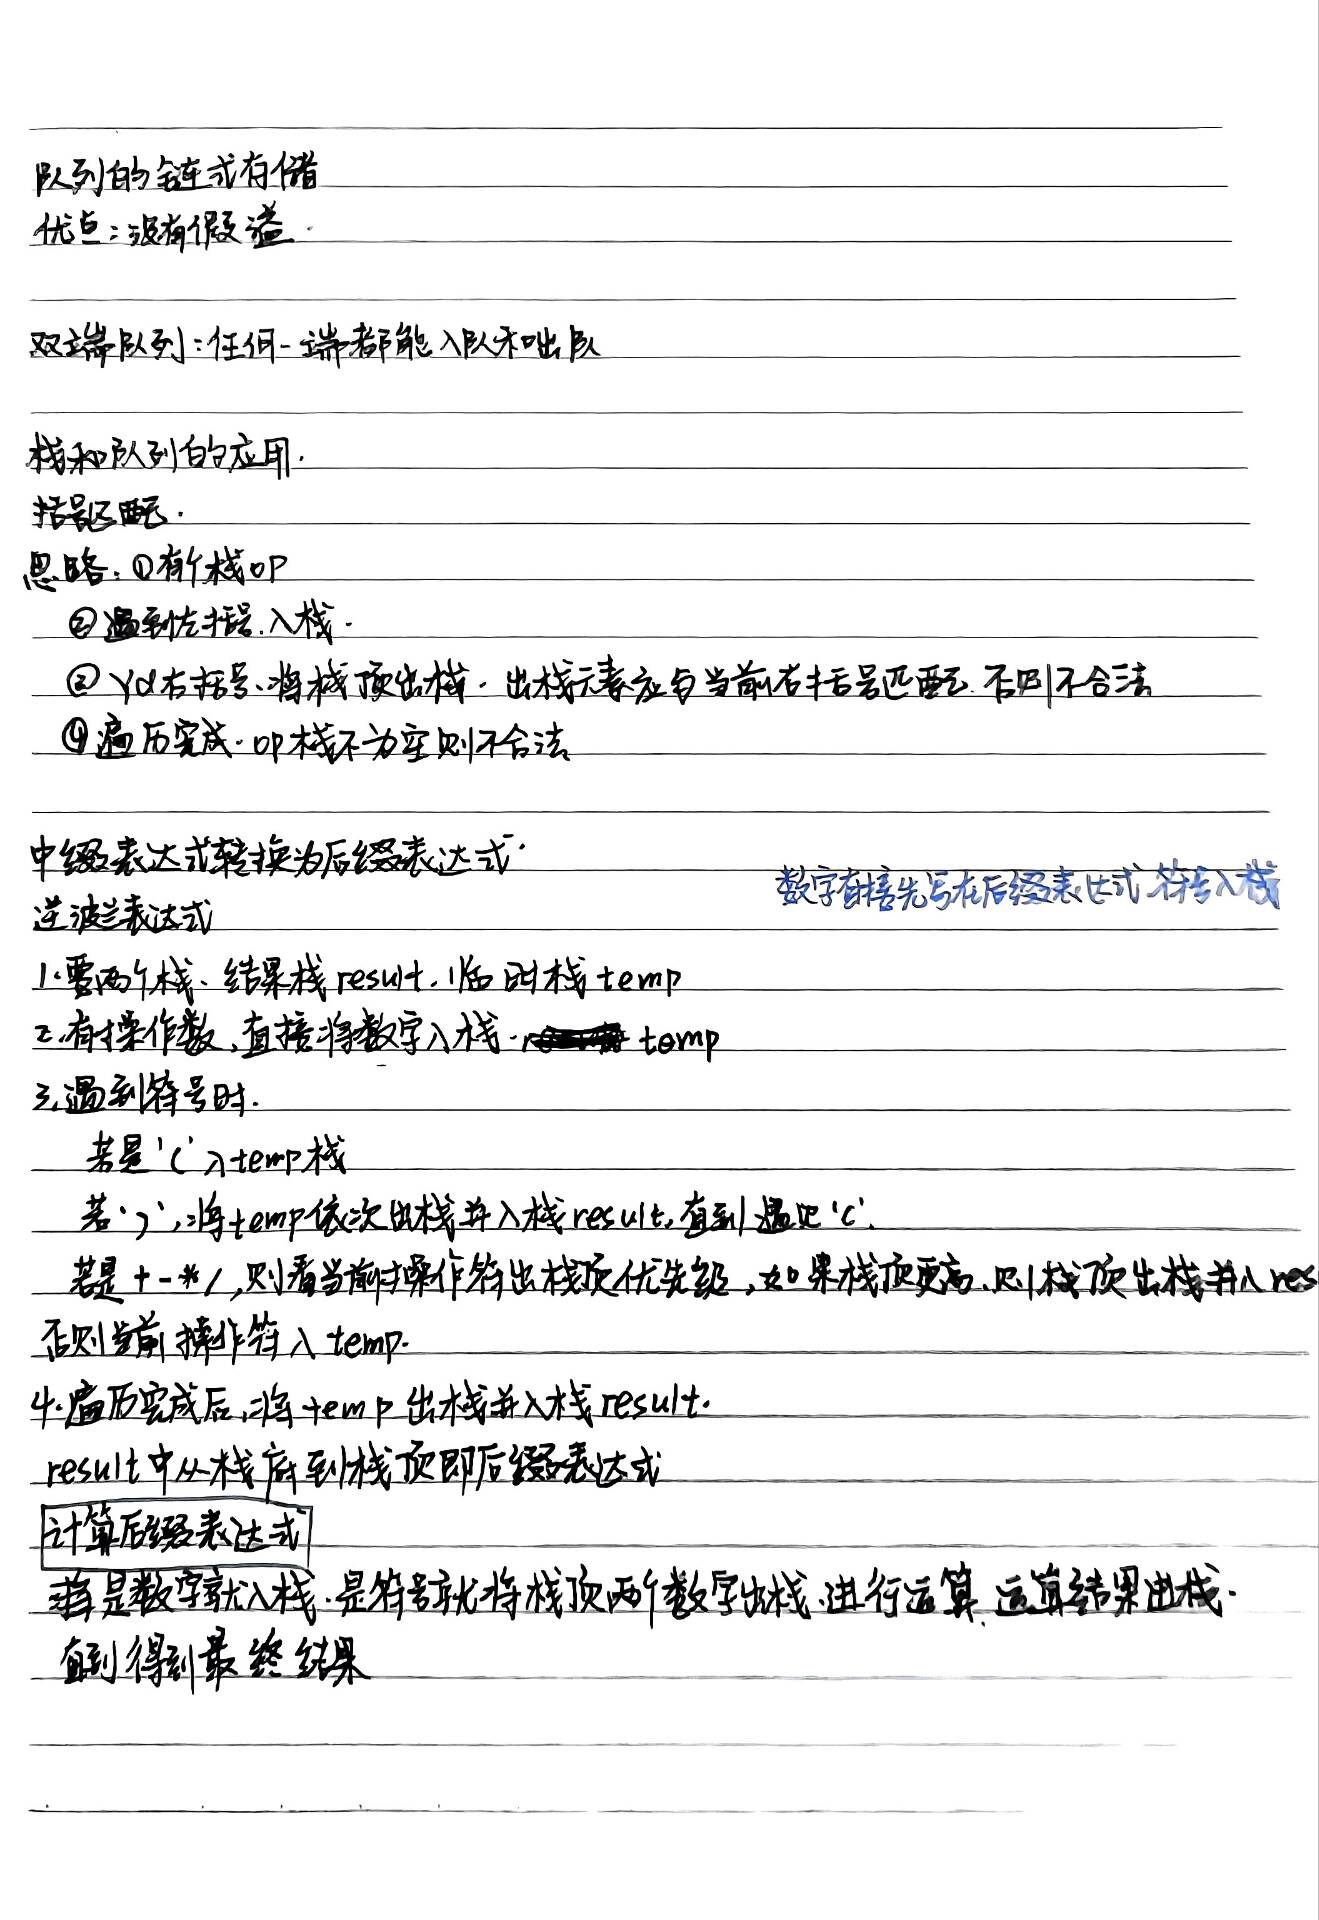 队列的链式存储
优点:没有假溢.
双端队列:任何一端都能入队和出队
栈和队列的应用.
括号匹配.
思路:①有个栈op
②遇到左括号.入栈.
③ yd右括号、将栈顶出栈.出栈元素应与当前右括号匹配.否则不合法
④遍历完成.op栈不为空则不合法
中缀表达式转换为后缀表达式.
数字直接先写在后缀表达式 符号入栈
逆波兰表达式
1.要两个栈、结果栈result.临时栈temp
2.有操作数,直接将数字入栈. temp
3.遇到符号时.
若是'('入temp栈
若')',将temp依次出栈并入栈result,直到遇见'('.
若是+-*/,则看当前操作符出栈顶优先级,如果栈顶更高、则栈顶出栈并入res
否则当前操作符入temp.
4.遍历完成后,将temp出栈并入栈result.
result中从栈底到栈顶即后缀表达式
计算后缀表达式
是数字就入栈.是符号就将栈顶两个数字出栈.进行运算.运算结果进栈.
直到得到最终结果